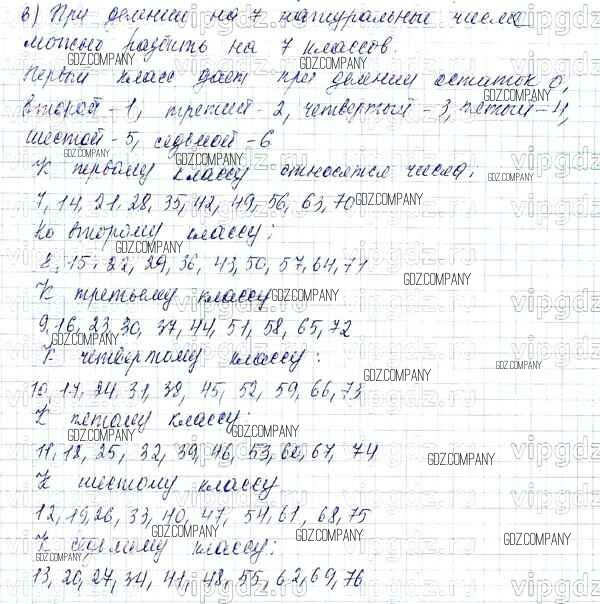 в) При делении на 7 натуральные числа
можно разбить на 7 классов.
Первый класс даёт при делении остаток 0,
второй - 1, третий - 2, четвертый - 3, пятый - 4,
шестой - 5, седьмой - 6
К первому классу относятся числа:
7, 14, 21, 28, 35, 42, 49, 56, 63, 70
Ко второму классу:
8, 15, 22, 29, 36, 43, 50, 57, 64, 71
К третьему классу
9, 16, 23, 30, 37, 44, 51, 58, 65, 72
К четвертому классу:
10, 17, 24, 31, 38, 45, 52, 59, 66, 73
К пятому классу:
11, 18, 25, 32, 39, 46, 53, 60, 67, 74
К шестому классу
12, 19, 26, 33, 40, 47, 54, 61, 68, 75
К седьмому классу:
13, 20, 27, 34, 41, 48, 55, 62, 69, 76